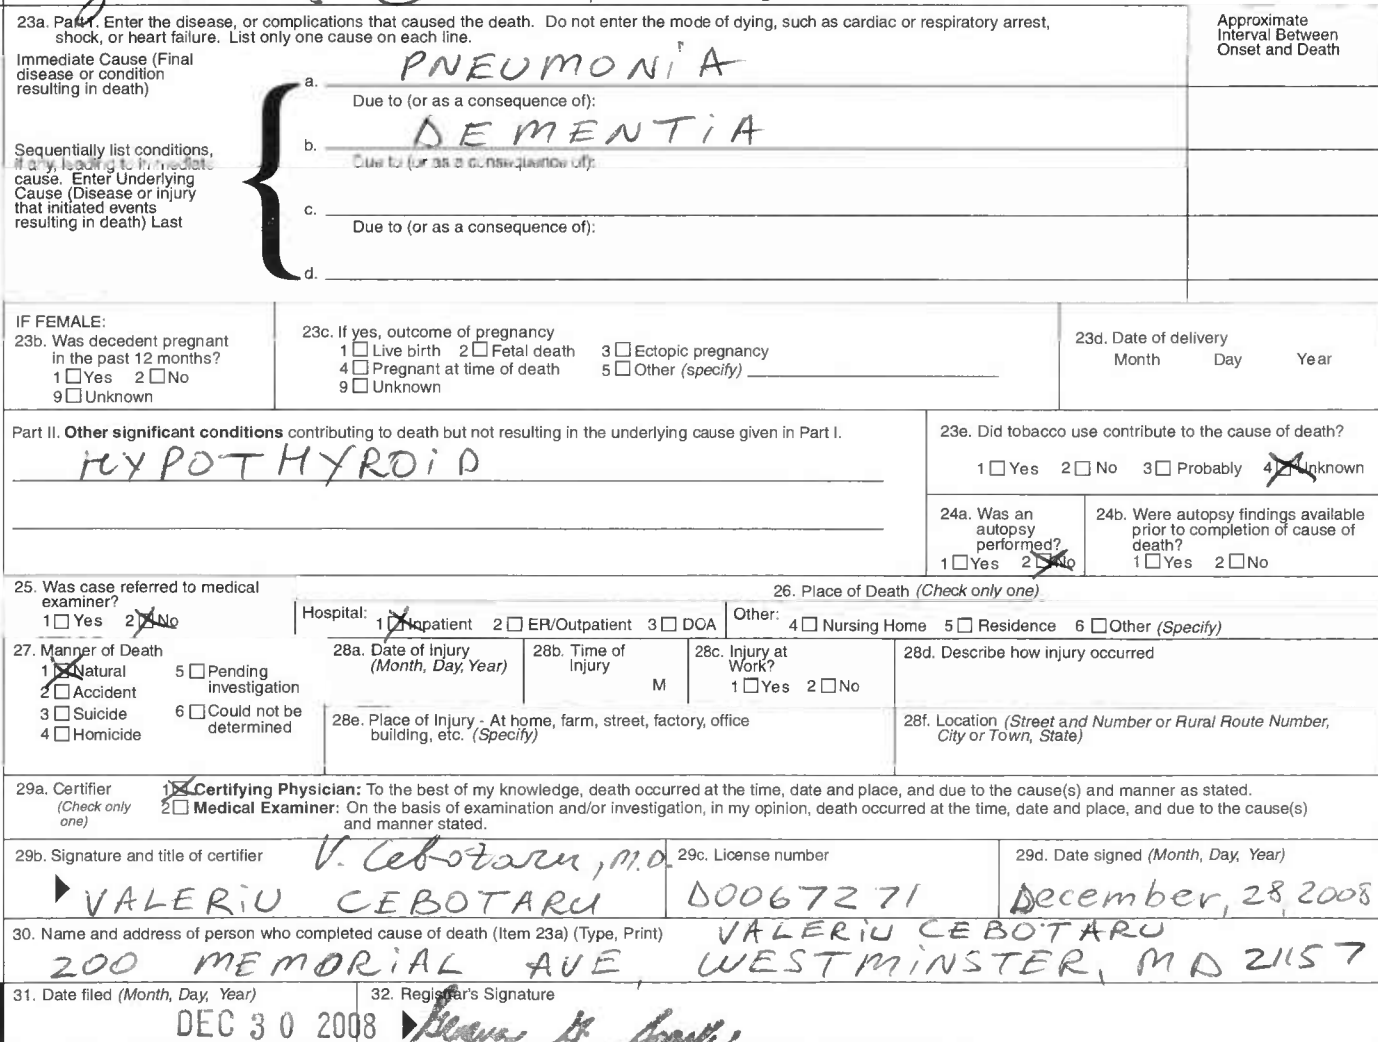 23a. Part I. Enter the disease, or complications that caused the death. Do not enter the mode of dying, such as cardiac or respiratory arrest,
shock, or heart failure. List only one cause on each line.
Approximate
Interval Between
Onset and Death
Immediate Cause (Final
disease or condition
resulting in death)
a. PNEUMONiA
Due to (or as a consequence of):
Sequentially list conditions,
if any, leading to immediate
cause. Enter Underlying
Cause (Disease or injury
that initiated events
resulting in death) Last
b. DEMENTiA
Due to (or as a consequence of):
c.
Due to (or as a consequence of):
d.
IF FEMALE:
23b. Was decedent pregnant
in the past 12 months?
1 □ Yes 2 □ No
9 □ Unknown
23c. If yes, outcome of pregnancy
1 □ Live birth 2 □ Fetal death 3 □ Ectopic pregnancy
4 □ Pregnant at time of death 5 □ Other (specify)
9 □ Unknown
23d. Date of delivery
Month Day Year
Part II. Other significant conditions contributing to death but not resulting in the underlying cause given in Part I.
HYPOTHYROiD
23e. Did tobacco use contribute to the cause of death?
1 □ Yes 2 □ No 3 □ Probably 4 ☒ Unknown
24a. Was an
autopsy
performed?
1 □ Yes 2 ☒ No
24b. Were autopsy findings available
prior to completion of cause of
death?
1 □ Yes 2 □ No
25. Was case referred to medical
examiner?
1 □ Yes 2 ☒ No
26. Place of Death (Check only one)
Hospital: 1 ☒ Inpatient 2 □ ER/Outpatient 3 □ DOA Other: 4 □ Nursing Home 5 □ Residence 6 □ Other (Specify)
27. Manner of Death
1 ☒ Natural 5 □ Pending
investigation
2 □ Accident
3 □ Suicide 6 □ Could not be
determined
4 □ Homicide
28a. Date of Injury
(Month, Day, Year)
28b. Time of
Injury
M
28c. Injury at
Work?
1 □ Yes 2 □ No
28d. Describe how injury occurred
28e. Place of Injury - At home, farm, street, factory, office
building, etc. (Specify)
28f. Location (Street and Number or Rural Route Number,
City or Town, State)
29a. Certifier
(Check only
one)
1 ☒ Certifying Physician: To the best of my knowledge, death occurred at the time, date and place, and due to the cause(s) and manner as stated.
2 □ Medical Examiner: On the basis of examination and/or investigation, in my opinion, death occurred at the time, date and place, and due to the cause(s)
and manner stated.
29b. Signature and title of certifier V. Cebotaru, M.D.
VALERiU CEBOTARU
29c. License number
D0067271
29d. Date signed (Month, Day, Year)
December, 28, 2008
30. Name and address of person who completed cause of death (Item 23a) (Type, Print) VALERiU CEBOTARU
200 MEMORiAL AVE, WESTMiNSTER, MD 21157
31. Date filed (Month, Day, Year)
DEC 30 2008
32. Registrar's Signature